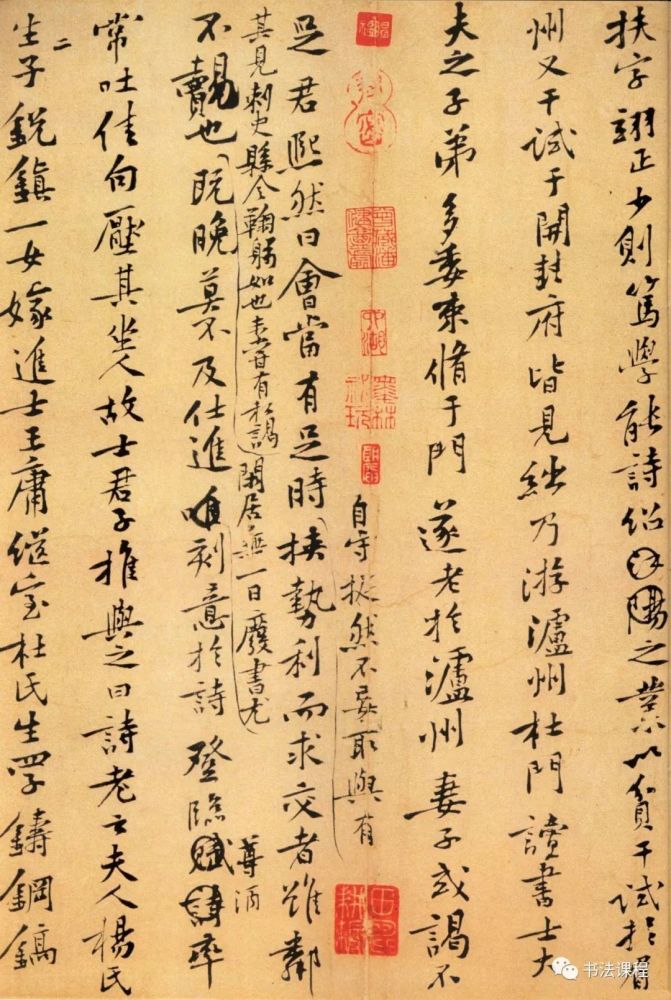 扶字翊正少則篤學能詩紹陽之業以貢干試於眉
州又干試于開封府皆見絀乃游瀘州杜門讀書士大
夫之子弟多委束脩于門遂老於瀘州妻子或謁不
自守挺然不妄取與有
足君熙然曰會當有足時挾勢利而求交者雖鄰
其見刺史縣令鞠躬如也有私謁閑居無一日廢書尤
不覿也既晚莫不及仕進唯刻意於詩登臨賦詩率
尊酒
常吐佳句壓其坐人故士君子推與之曰詩老云夫人楊氏
生二子銳鎮一女嫁進士王庸繼室杜氏生四子鑄鋼鎬
书法课程